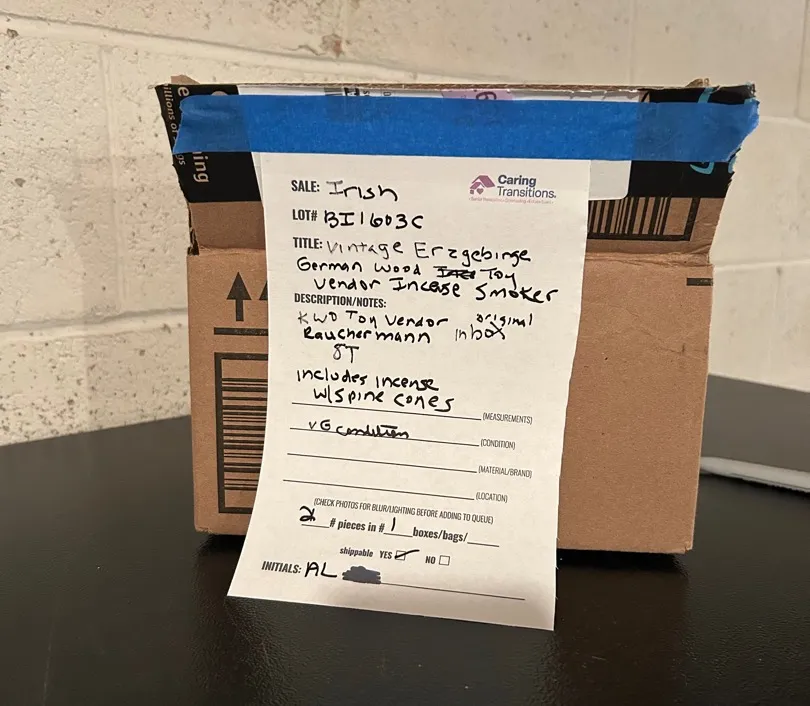 SALE: Irish
Caring Transitions.
LOT# BI1603C
TITLE: Vintage Erzgebirge
German Wood Toy
Vendor Incense Smoker
DESCRIPTION/NOTES:
KWO Toy Vendor original
Rauchermann in box
8T
includes incense
w/spine cones
(MEASUREMENTS)
VG condition (CONDITION)
(MATERIAL/BRAND)
(LOCATION)
(CHECK PHOTOS FOR BLUR/LIGHTING BEFORE ADDING TO QUEUE)
2 # pieces in # 1 boxes/bags/
shippable YES NO
INITIALS: AL
ning